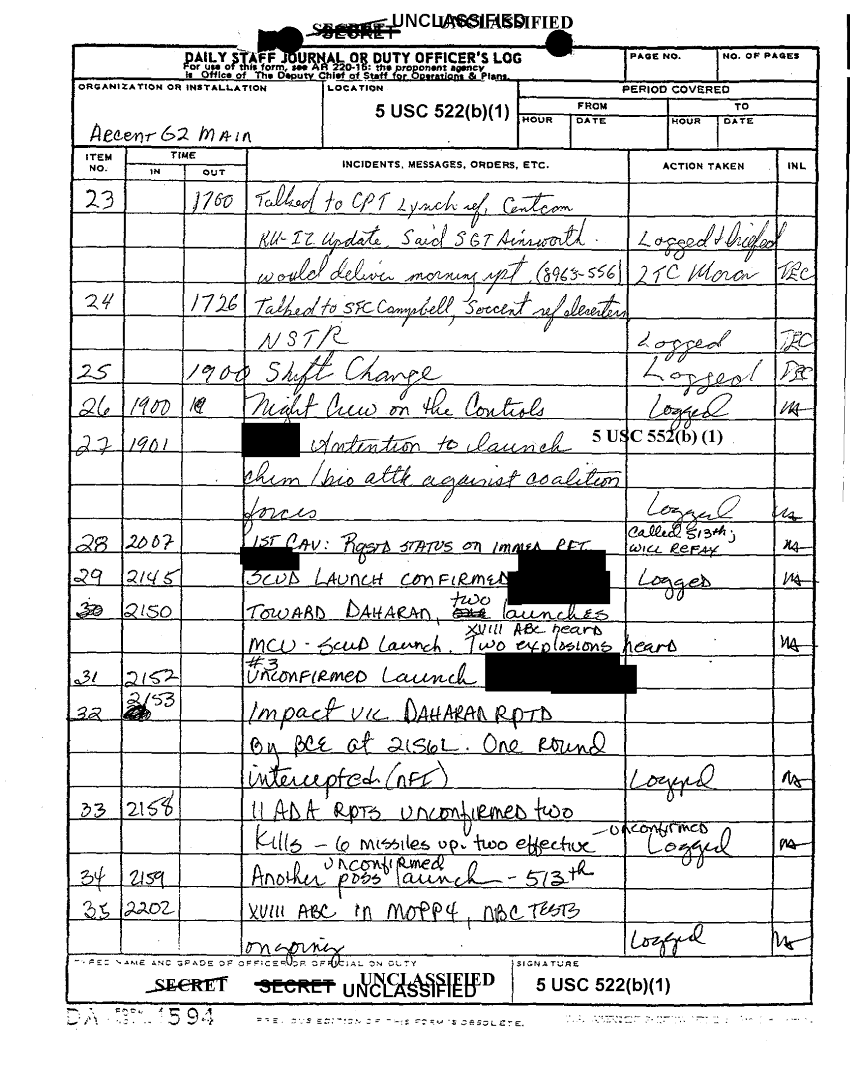 UNCLASSIFIED
SECRET UNCLASSIFIED
DAILY STAFF JOURNAL OR DUTY OFFICER'S LOG
For use of this form, see AR 220-15; the proponent agency
is Office of The Deputy Chief of Staff for Operations & Plans.
PAGE NO.
NO. OF PAGES
ORGANIZATION OR INSTALLATION
Arcent G2 MAIN
LOCATION
5 USC 522(b)(1)
PERIOD COVERED
FROM TO
HOUR DATE HOUR DATE
ITEM NO. TIME IN OUT INCIDENTS, MESSAGES, ORDERS, ETC. ACTION TAKEN INL
23 1700 Talked to CPT Lynch ref, Centcom
KU-IZ Update, Said SGT Ainsworth. Logged & briefed
would deliver morning rpt. (8963-556) LTC Moran TEC
24 1726 Talked to SFC Campbell, Soccent ref deserters
NSTR Logged TEC
25 1900 Shift Change Logged TEC
26 1900 Night Crew on the Controls Logged
5 USC 552(b) (1)
27 1901 Intention to launch
chem/bio attk against coalition
forces Logged
28 2007 1ST CAV: Rqstd STATUS ON IMMED RFI. Called 513th;
WILL REFAX
29 2145 SCUD LAUNCH CONFIRMED Logged
30 2150 TOWARD DAHARAN, two launches
XVIII ABC heard
MCU - Scud Launch. Two explosions heard
#3
31 2152 UNCONFIRMED Launch
32 2153 Impact vic DAHARAN RPTD
By BCE at 2156L. One Round
intercepted (NFI) Logged
33 2158 11 ADA RPTS unconfirmed two
Kills - 6 missiles up. two effective - unconfirmed Logged
unconfirmed
34 2159 Another poss launch - 513th
35 2202 XVIII ABC in MOPP4, NBC TESTS
ongoing Logged
TYPED NAME AND GRADE OF OFFICER OR OFFICIAL ON DUTY
SECRET SECRET UNCLASSIFIED
UNCLASSIFIED
SIGNATURE
5 USC 522(b)(1)
DA FORM 1594
PREVIOUS EDITION OF THIS FORM IS OBSOLETE.